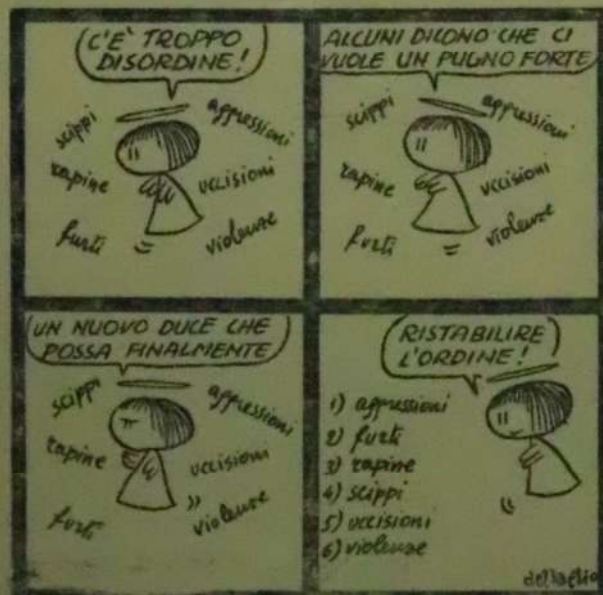 C'E' TROPPO
DISORDINE!
scippi
aggressioni
rapine
uccisioni
furti
violenze
ALCUNI DICONO CHE CI
VUOLE UN PUGNO FORTE
scippi
aggressioni
rapine
uccisioni
furti
violenze
UN NUOVO DUCE CHE
POSSA FINALMENTE
scippi
aggressioni
rapine
uccisioni
furti
violenze
RISTABILIRE
L'ORDINE!
1) aggressioni
2) furti
3) rapine
4) scippi
5) uccisioni
6) violenze